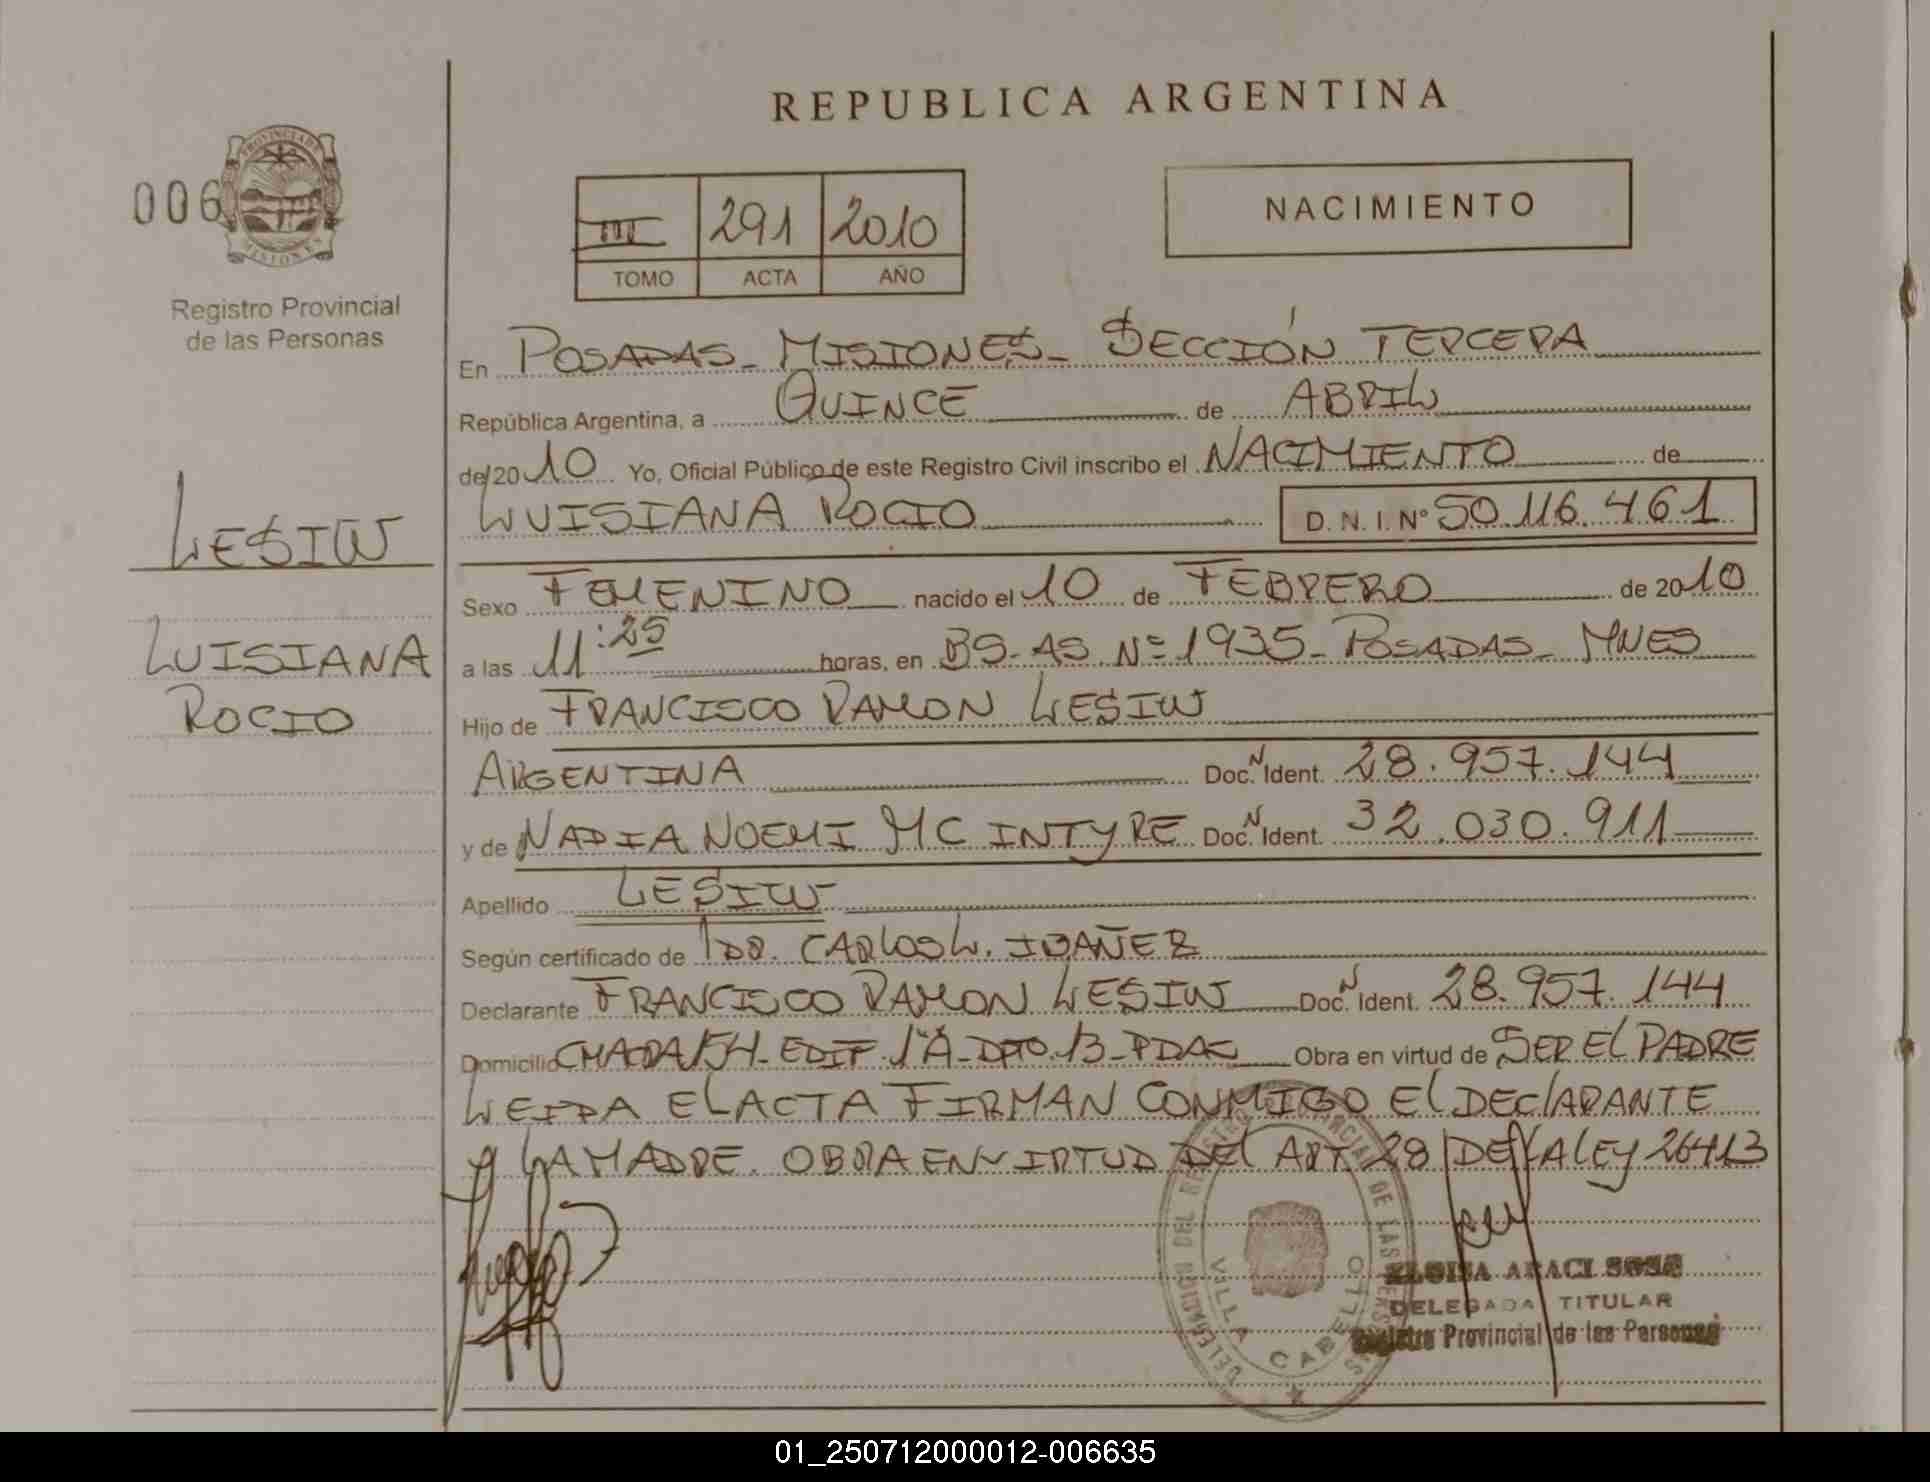 REPUBLICA ARGENTINA
006
PROVINCIA DE
MISIONES
Registro Provincial
de las Personas
III 291 2010
TOMO ACTA AÑO
NACIMIENTO
LESIW
LUISIANA
ROCIO
En POSADAS - MISIONES - SECCIÓN TERCERA
República Argentina, a QUINCE de ABRIL
de 2010 Yo, Oficial Público de este Registro Civil inscribo el NACIMIENTO de
LUISIANA ROCIO D. N. I. N° 50.116.461
Sexo FEMENINO nacido el 10 de FEBRERO de 2010
a las 11:25 horas, en BS. AS. Nº 1935 - POSADAS - MNES
Hijo de FRANCISCO RAMON LESIW
ARGENTINA Doc. N Ident. 28.957.144
y de NADIA NOEMI MC INTYRE Doc. N Ident. 32.030.911
Apellido LESIW
Según certificado de DR. CARLOS L. IBAÑEZ
Declarante FRANCISCO RAMON LESIW Doc. N Ident. 28.957.144
Domicilio CHACRA 154 - EDIF. 1"A - DPTO. 13 - PDAS Obra en virtud de SER EL PADRE
LEIDA EL ACTA FIRMAN CONMIGO EL DECLARANTE
Y LA MADRE. OBRA EN VIRTUD DEL ART. 28 DE LA LEY 26413
DELEGACION DEL REGISTRO PROVINCIAL DE LAS PERSONAS
VILLA CABELLO
ELOISA ARACI SOSA
DELEGADA TITULAR
Registro Provincial de las Personas
01_250712000012-006635